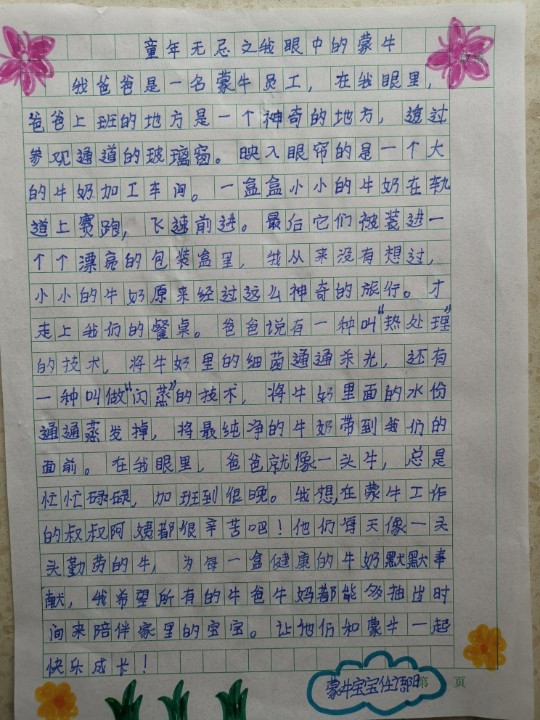 童年无忌之我眼中的蒙牛
我爸爸是一名蒙牛员工，在我眼里，
爸爸上班的地方是一个神奇的地方，透过
参观通道的玻璃窗。映入眼帘的是一个大
的牛奶加工车间。一盒盒小小的牛奶在轨
道上赛跑，飞速前进。最后它们被装进一
个个漂亮的包装盒里，我从来没有想过，
小小的牛奶原来经过这么神奇的旅行。才
走上我们的餐桌。爸爸说有一种叫“热处理”
的技术，将牛奶里的细菌通通杀光，还有
一种叫做“闪蒸”的技术，将牛奶里面的水份
通通蒸发掉，将最纯净的牛奶带到我们的
面前。在我眼里，爸爸就像一头牛，总是
忙忙碌碌，加班到很晚。我想，在蒙牛工作
的叔叔阿姨都很辛苦吧！他们每天像一头
头勤劳的牛，为每一盒健康的牛奶默默奉
献，我希望所有的牛爸牛妈都能够抽出时
间来陪伴家里的宝宝。让他们和蒙牛一起
快乐成长！
蒙牛宝宝任
第 页